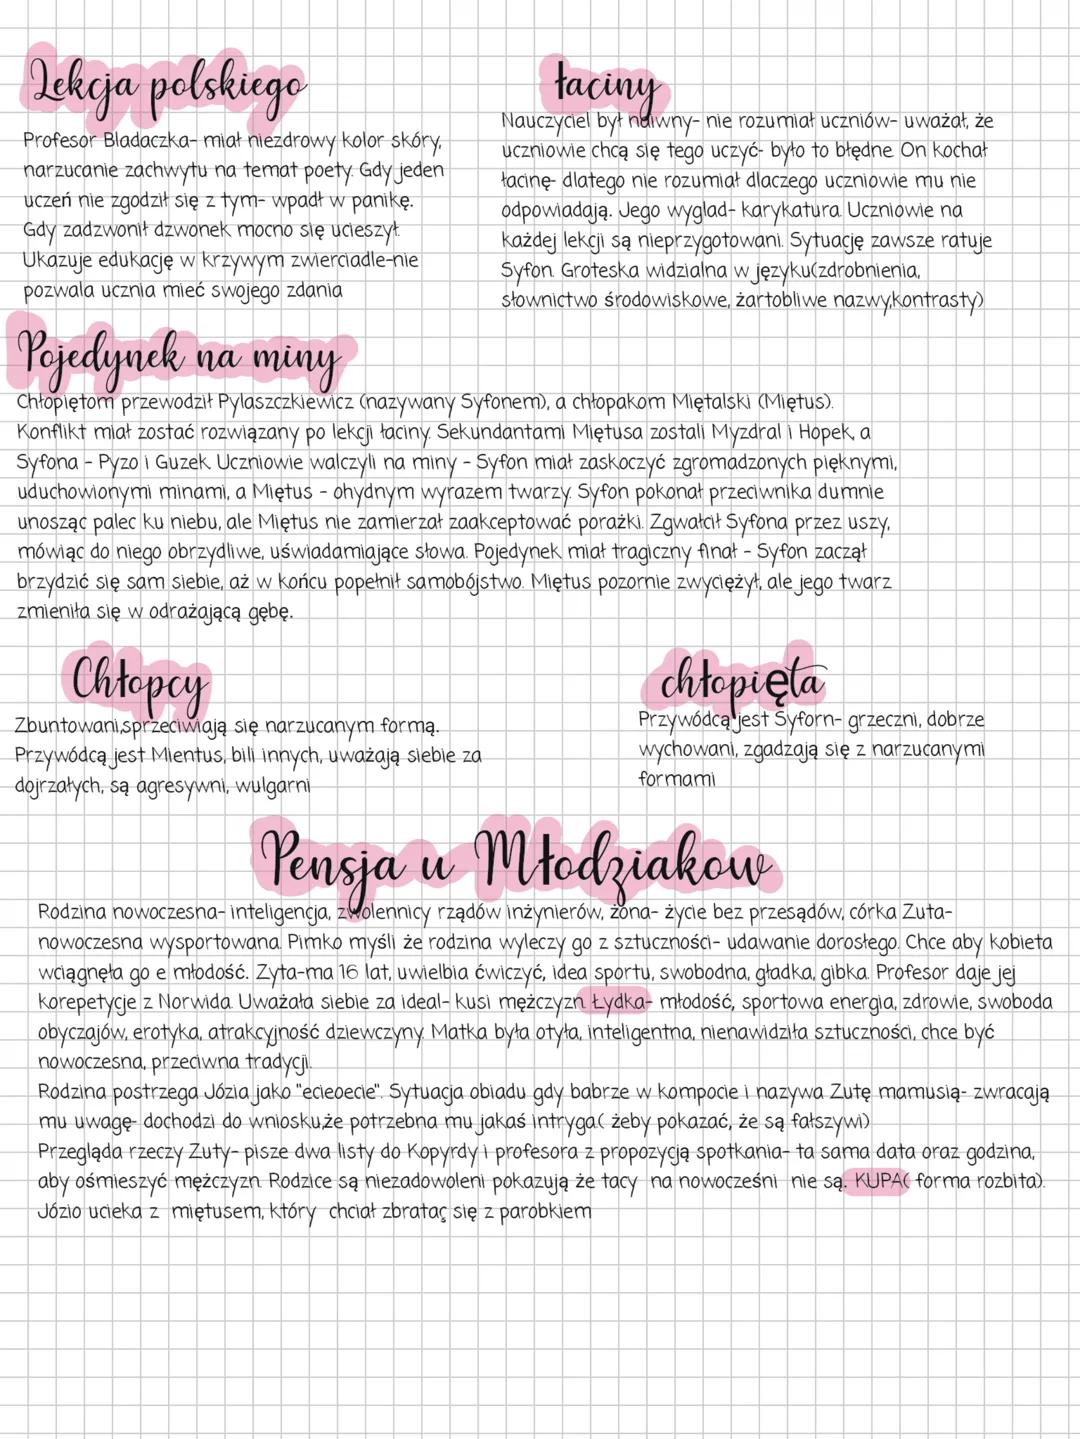 Lekcja polskiego
Profesor Bladaczka- miał niezdrowy kolor skóry,
narzucanie zachwytu na temat poety. Gdy jeden
uczeń nie zgodził się z tym- wpadł w panikę.
Gdy zadzwonił dzwonek mocno się ucieszył.
Ukazuje edukację w krzywym zwierciadle-nie
pozwala ucznia mieć swojego zdania
łaciny
Nauczyciel był naiwny- nie rozumiał uczniów- uważał, że
uczniowie chcą się tego uczyć- było to błędne. On kochał
łacinę- dlatego nie rozumiał dlaczego uczniowie mu nie
odpowiadają. Jego wyglad- karykatura. Uczniowie na
każdej lekcji są nieprzygotowani. Sytuację zawsze ratuje
Syfon. Groteska widzialna w języku(zdrobnienia,
słownictwo środowiskowe, żartobliwe nazwy,kontrasty)
Pojedynek na miny
Chłopiętom przewodził Pylaszczkiewicz (nazywany Syfonem), a chłopakom Miętalski (Miętus).
Konflikt miał zostać rozwiązany po lekcji łaciny. Sekundantami Miętusa zostali Myzdral i Hopek, a
Syfona - Pyzo i Guzek. Uczniowie walczyli na miny - Syfon miał zaskoczyć zgromadzonych pięknymi,
uduchowionymi minami, a Miętus - ohydnym wyrazem twarzy. Syfon pokonał przeciwnika dumnie
unosząc palec ku niebu, ale Miętus nie zamierzał zaakceptować porażki. Zgwałcił Syfona przez uszy,
mówiąc do niego obrzydliwe, uświadamiające słowa. Pojedynek miał tragiczny finał - Syfon zaczął
brzydzić się sam siebie, aż w końcu popełnił samobójstwo. Miętus pozornie zwyciężył, ale jego twarz
zmieniła się w odrażającą gębę.
Chłopcy
Zbuntowani,sprzeciwiają się narzucanym formą.
Przywódcą jest Mientus, bili innych, uważają siebie za
dojrzałych, są agresywni, wulgarni
chłopięta
Przywódcą jest Syforn- grzeczni, dobrze
wychowani, zgadzają się z narzucanymi
formami
Pensja u Młodziakow
Rodzina nowoczesna- inteligencja, zwolennicy rządów inżynierów, żona- życie bez przesądów, córka Zuta-
nowoczesna wysportowana. Pimko myśli że rodzina wyleczy go z sztuczności- udawanie dorosłego. Chce aby kobieta
wciągnęła go e młodość. Zyta-ma 16 lat, uwielbia ćwiczyć, idea sportu, swobodna, gładka, gibka. Profesor daje jej
korepetycje z Norwida. Uważała siebie za ideal- kusi mężczyzn. Łydka- młodość, sportowa energia, zdrowie, swoboda
obyczajów, erotyka, atrakcyjność dziewczyny. Matka była otyła, inteligentna, nienawidziła sztuczności, chce być
nowoczesna, przeciwna tradycji.
Rodzina postrzega Józia jako "ecieoecie". Sytuacja obiadu gdy babrze w kompocie i nazywa Zutę mamusią- zwracają
mu uwagę- dochodzi do wniosku,że potrzebna mu jakaś intryga( żeby pokazać, że są fałszywi)
Przegląda rzeczy Zuty- pisze dwa listy do Kopyrdy i profesora z propozycją spotkania- ta sama data oraz godzina,
aby ośmieszyć mężczyzn. Rodzice są niezadowoleni pokazują że tacy na nowocześni nie są. KUPA( forma rozbita).
Józio ucieka z miętusem, który chciał zbratać się z parobkiem